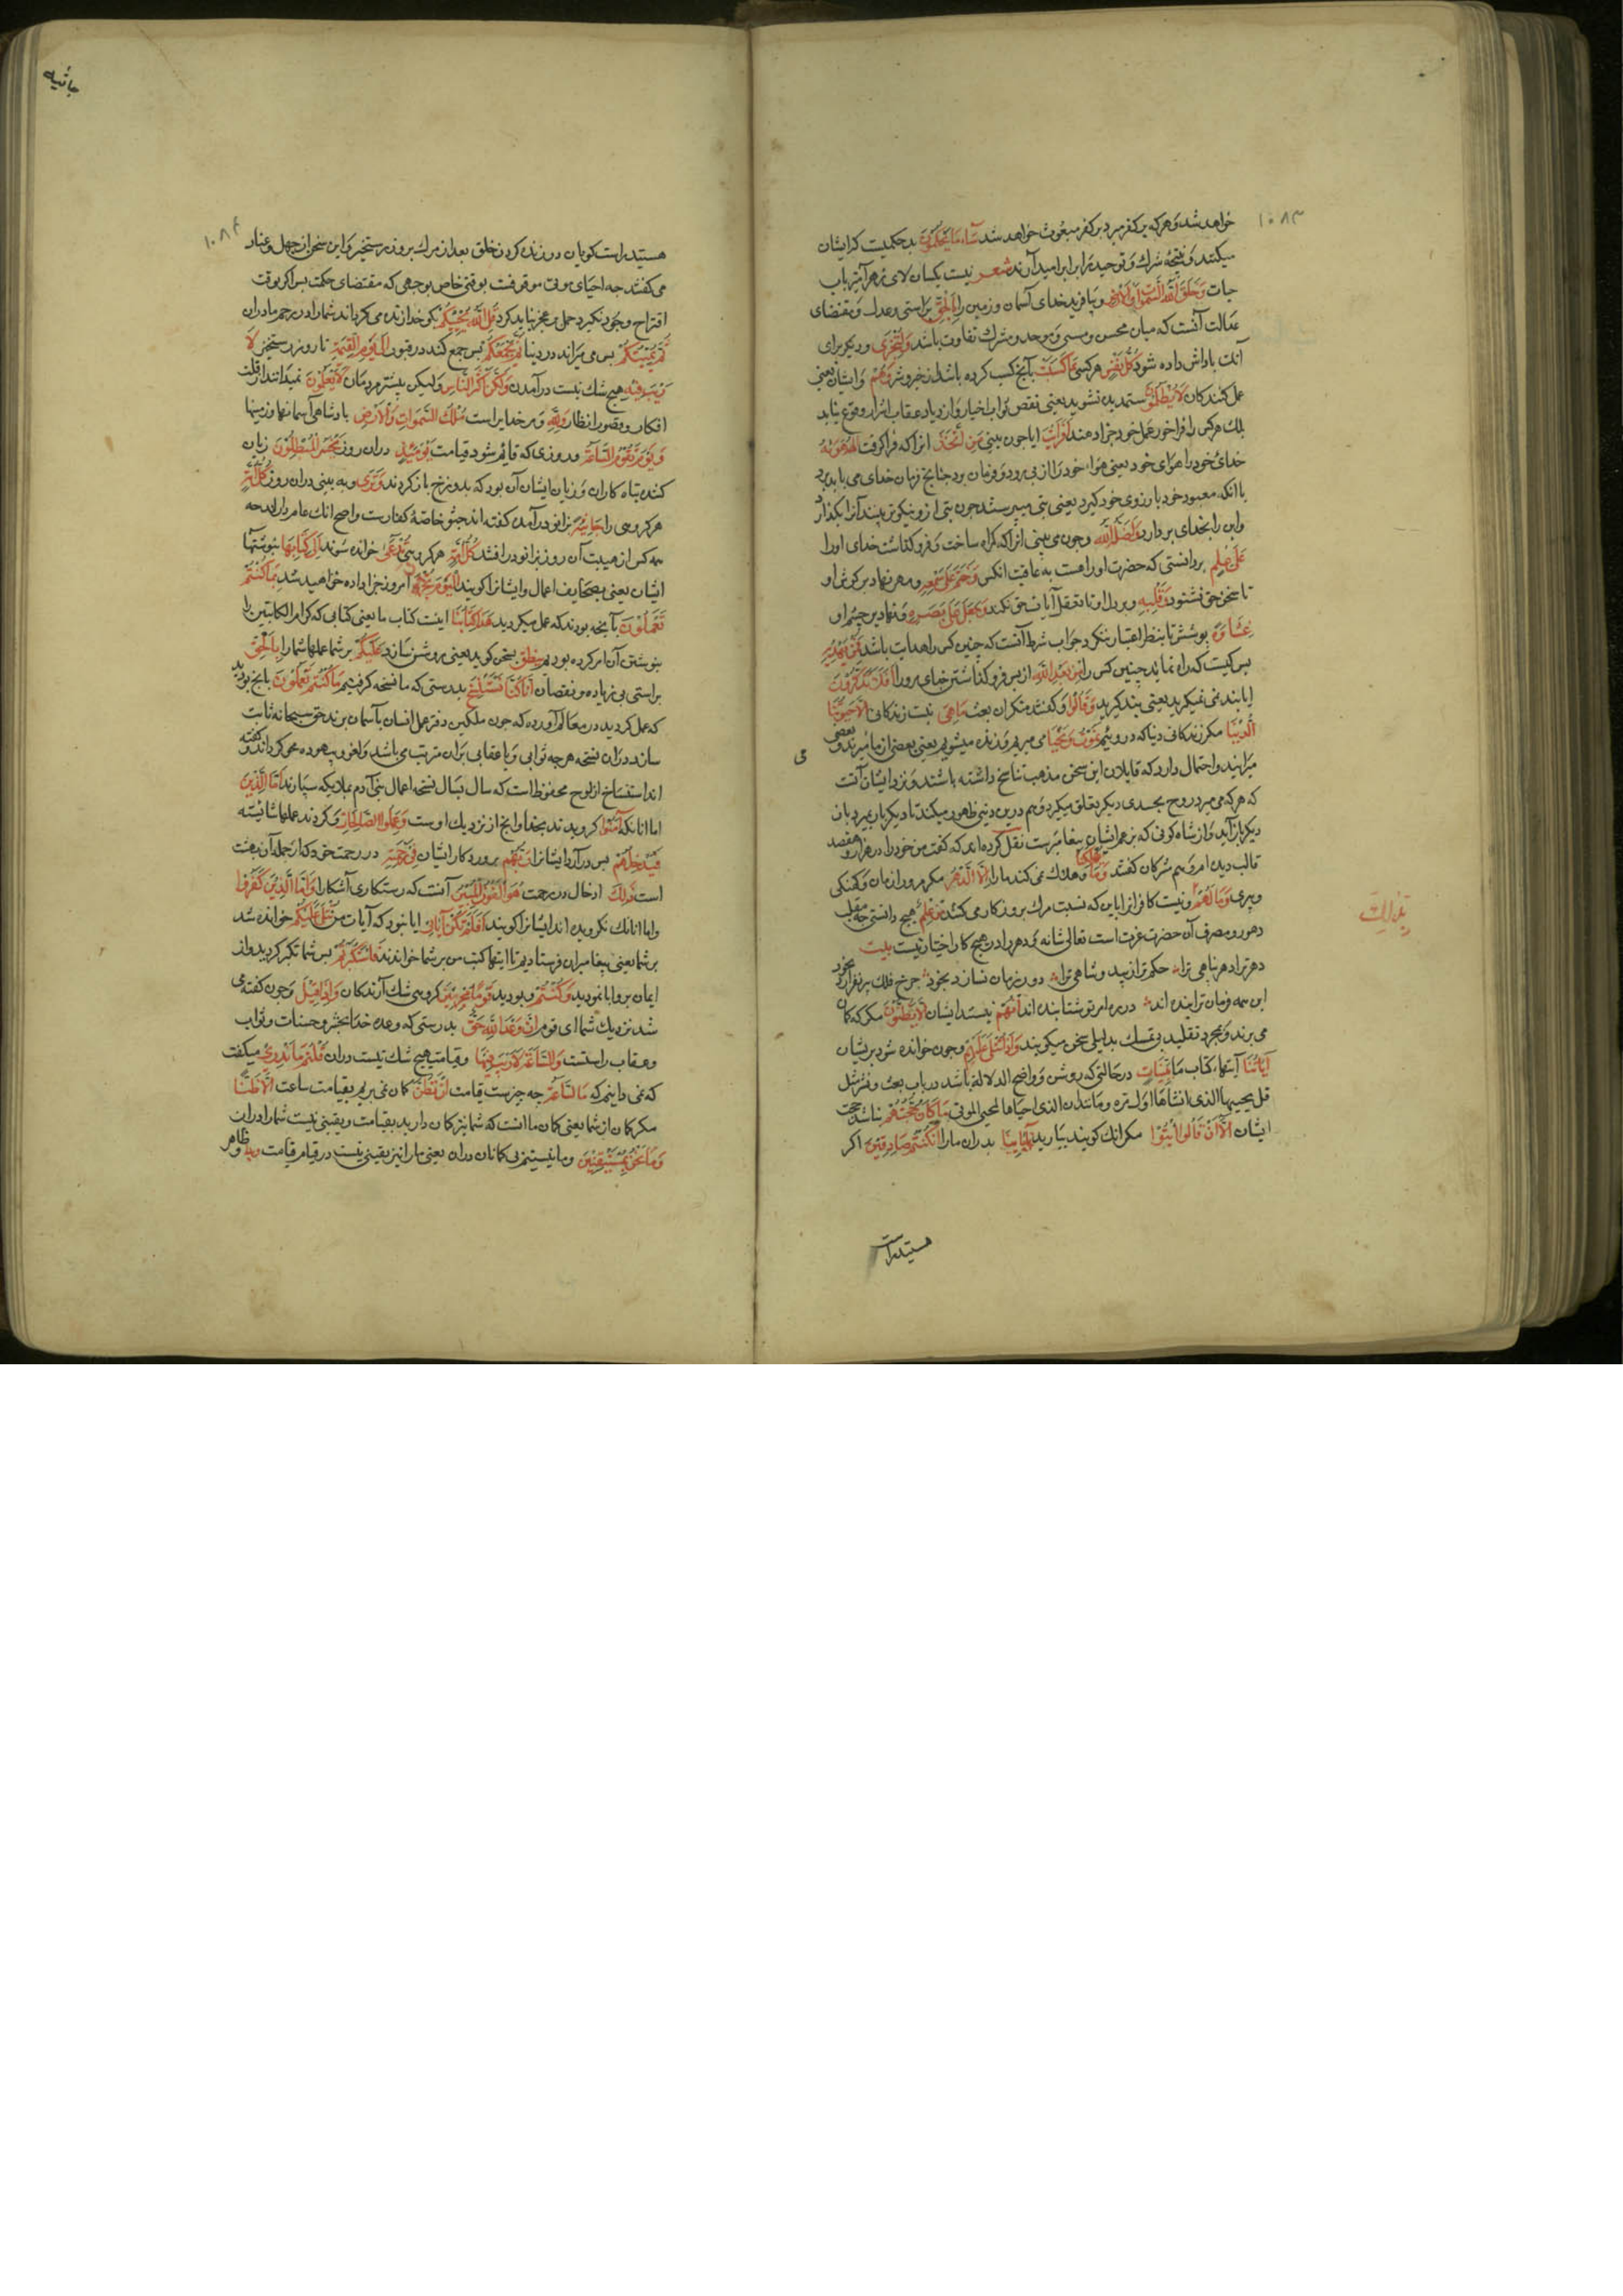 ۱۰۸۳
خواهد شد و هر که بر کفر میرد بر کفر مبعوث خواهد شد سآء ما یحکمون بد حکمیست که ایشان
میکنند و نتیجه شرک و توحید برابر امید آرند شعر نیست یکسان لای زهرآمیز باب
حیات وخلق الله السموات والارض و بیافرید خدای آسمان و زمین را بالحق براستی و عدل و مقتضای
عدالت آنست که میان محسن و مسی و موحد و مشرک تفاوت باشد ولتجزی و دیکر برای
آنکه باداش داده شود کل نفس هر کسی بما کسبت بآنچ کسب کرده باشد از خیر و شر وهم و ایشان یعنی
عمل کنندکان لا یظلمون ستمدیده نشوند یعنی نقص ثواب اخیار و ازدیاد عقاب اشرار وقوع نیابد
بلک هر کس را فراخور عمل خود جزا دهند افرایت ایا جون بینی من اتخذ انرا که فرا کرفت الهه هویه
خدای خود را هوای خود یعنی هوای خود را از بی رود و فرمان برد جنانج فرمان خدای می باید برد
یا انکه معبود خود بارزوی خود کیرد یعنی بتی میپرستند جون بتی از و نیکوتر بینند آنرا بکذارد
و این را بخدای بردارد واضله الله وجون می بینی انرا که کمراه ساخت و فرو کذاشت خدای او را
علی علم بر دانستی که حضرت او را هست به عاقبت انکس وختم علی سمعه و مهر نهاد بر کوش او
تا سخن حق نشنود وقلبه و بر دل او تا تعقل آیات حق نکند وجعل علی بصره و نهاد بر چشم او
غشاوة پوشش تا بنظر اعتبار ننکرد جواب شرط آنست که چنین کس را هدایت باشد فمن یهدیه
بس کیست که راه نماید چنین کس را من بعد الله از بس فرو کذاشتن خدای مرو را افلا تذکرون
ایا پند نمی کیرید یعنی پند کیرید وقالوا و کفتند منکران بعث ما هی نیست زندکانی الا حیوتنا
الدنیا مکر زندکانی دنیا که درویم نموت ونحیا می میریم و زنده میشویم یعنی بعضی از ما میرند و بعضی
میزایند و احتمال دارد که قایلان این سخن مذهب تناسخ داشته باشند و نزد ایشان آنست
که هر که می میرد روح بجسدی دیکر تعلق میکیرد و هم درین دنیی ظهور میکند تا دیکر بار بمیرد باز
دیکر باز آید و از شاه کونی که بزعم ایشان پیغامبرست نقل کرده اند که کفت من خود را در هزار و هفصد
قالب دیده ام و هم مشرکان کفتند وما یهلکنا و هلاک نمی کند ما را الا الدهر مکر مرور ازمان و کهنکی
و پیری وما لهم و نیست کافرانرا باین که نسبت مرک بروزکار می کنند من علم هیچ دانستی چه مقلب
دهور و مصرف آن حضرت عزت است تعالی شانه و دهر را در هیچ کار اختیار نیست بیت
دهر ترا دهر پناهی تراه حکم ترا زیبد و شاهی تراه دور زمان نسازد بخود چرخ فلک بر نفرازد بخود
این همه فرمان ترا بنده اند در ره امر تو شتابنده اند ان هم نیستند ایشان الا یظنون مکر که کمان
می برند و بمجرد تقلید بی تمسک بدلیلی سخن میکویند واذا تتلی علیهم وجون خوانده شود بریشان
آیاتنا آیتهاء کتاب ما بینات در حالتی که روشن و واضح الدلالة باشد در باب بعث و نشر مثل
قل یحییها الذی انشاها اول مرة و مانند ان الذی احیاها لمحیی الموتی ما کان حجتهم نباشد حجت
ایشان الا ان قالوا ائتوا مکر انک کویند بیارید بآبائنا پدران ما را ان کنتم صادقین اکر
هستید راست
جاثیه
۱۰۸۴
هستید راست کویان در زنده کردن خلق بعد از مرک بروز رستخیز و این سخن از جهل و عناد
می کفتند چه احیای موتی موقوفست بوقتی خاص بوجهی که مقتضای حکمت بس اکر بوقت
اقتراح وجود نکیرد حمل بر عجز نباید کرد قل الله یحییکم بکو خدا زنده می کرداند شما را در رحم مادران
ثم یمیتکم بس می میراند در دنیا ثم یجمعکم بس جمع کند در قبور الی یوم القیمة تا روز رستخیز لا
ریب فیه هیچ شک نیست در آمدن ولکن اکثر الناس ولیکن بیشتر مردمان لا یعلمون نمیدانند از قلت
افکار و قصور انظار ولله و مر خدایراست ملک السموات والارض بادشاهی آسمانها و زمینها
ویوم تقوم الساعة و روزی که قایم شود قیامت یومئذ دران روز یخسر المبطلون زیان
کنند تباه کاران و زیان ایشان آن بود که بدوزخ باز کردند وتری و به بینی دران روز کل امة
هر کروهی را جاثیة بزانو در آمده کفته اند جثو خاصهٔ کفارست و اصح انک عام دارند چه
همه کس از هیبت آن روز بزانو درافتند کل امة هر کروهی تدعی خوانده شوند الی کتابها بنوشتهاء
ایشان یعنی بصحایف اعمال و ایشانرا کویند الیوم تجزون امروز جزا داده خواهید شد ما کنتم
تعملون بآنچه بودند که عمل میکردید هذا کتابنا اینست کتاب ما یعنی کتابی که کرام الکاتبین را
بنوشتن آن امر کرده بودیم ینطق سخن کوید یعنی روشن سازد علیکم بر شما عملهاء شما را بالحق
براستی بی زیاده و نقصان انا کنا نستنسخ بدرستی که ما نسخه کرفتیم ما کنتم تعملون بانچ بودید
که عمل کردید در معالم آورده که جون ملکین دفتر عمل انسان بآسمان برند حق سبحانه ثابت
سازد دران نسخه هر چه ثوابی و یا عقابی بران مترتب می باشد و لغو و بیهوده محو کرداند و کفته
اند استنساخ از لوح محفوظ است که سال بسال نسخه اعمال بنی آدم بملایکه سپارند فاما الذین
اما انانکه آمنوا کرویدند بخدا و انچ از نزدیک اوست وعملوا الصالحات و کردند عملهاء شایسته
فیدخلهم بس درآرد ایشانرا ربهم پروردکار ایشان فی رحمته در رحمت خود که از جمله آن بهشت
است ذلک ادخال در رحمت هو الفوز المبین آنست که رستکاری آشکارا واما الذین کفروا
و اما انانک نکرویده اند ایشانرا کویند افلم تکن آیاتی ایا نبود که آیات من تتلی علیکم خوانده شد
بر شما یعنی پیغامبران فرستادیم تا ایتهاء کتب من بر شما خواندند فاستکبرتم بس شما تکبر کردید و از
ایمان بر ابا نمودید وکنتم و بودید قوما مجرمین کروهی شک آرندکان واذا قیل وجون کفته می
شد نزدیک شما ای قوم ان وعد الله حق بدرستی که وعده خدا بحشر و حسنات و ثواب
و عقاب راستست والساعة لا ریب فیها و قیامت هیچ شک نیست دران قلتم ما ندری میکفتید
که نمی دانیم که ما الساعة چه چیزست قیامت ان نظن کمان نمی بریم بقیامت ساعت الا ظنا
مکر کمان از شما یعنی کمان ما انست که شما نیز کمان دارید بقیامت و یقینی نیست شما را دران
وما نحن بمستیقنین و ما نیستیم بی کمانان دران یعنی ما را نیز یقینی نیست در قیام قیامت وبدا و ظاهر